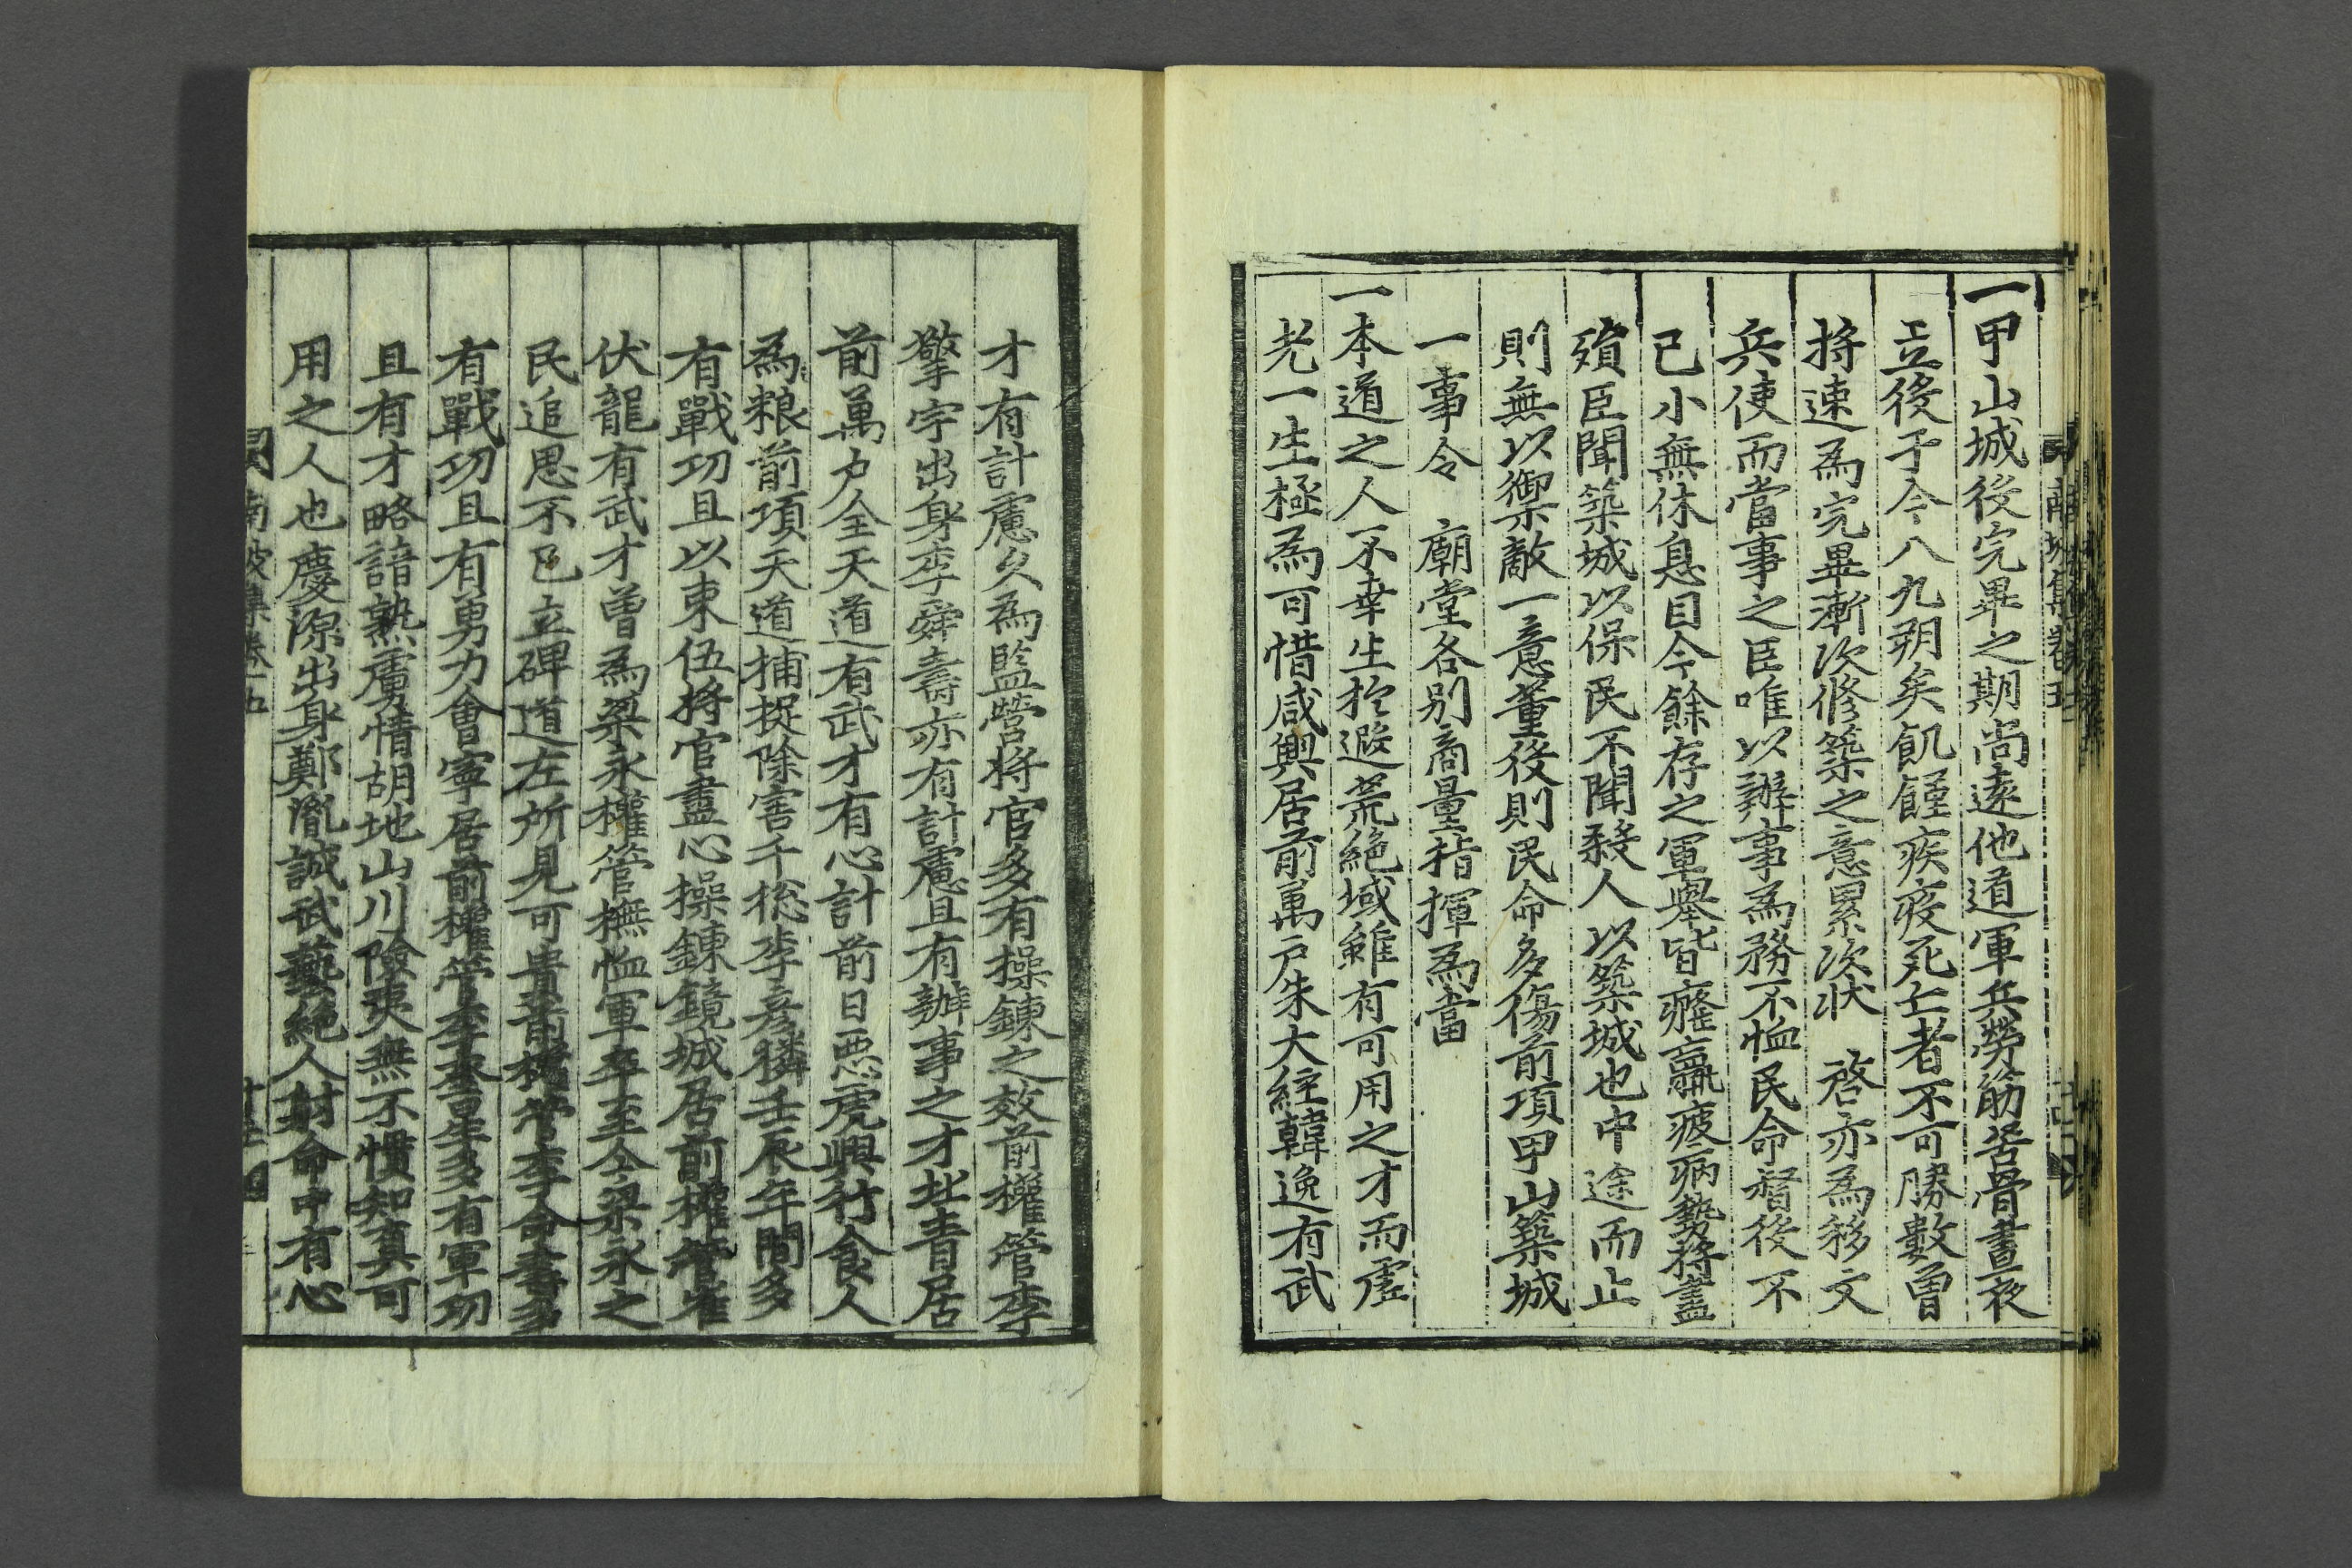 一甲山城役完畢之期尚遠他道軍兵勞筋苦骨晝夜
立役于今八九朔矣飢饉疾疫死亡者不可勝數曾
將速爲完畢漸次修築之意累次狀 啓亦爲移文
兵使而當事之臣唯以辦事爲務不恤民命督役不
已小無休息目今餘存之軍擧皆癃羸疲病勢將盡
殞臣聞築城以保民不聞殺人以築城也中途而止
則無以禦敵一意董役則民命多傷前項甲山築城
一事令 廟堂各別商量指揮爲當
一本道之人不幸生於遐荒絶域雖有可用之才而虛
老一生極爲可惜咸興居前萬戶朱大經韓逸有武
才有計慮久爲監營將官多有操鍊之效前權管李
擎宇出身李舜壽亦有計慮且有辦事之才北青居
前萬戶全天道有武才有心計前日惡虎興行食人
爲粮前項天道捕捉除害千総李彦獜壬辰年間多
有戰功且以束伍將官盡心操鍊鏡城居前權管崔
伏龍有武才曾爲梁永權管撫恤軍卒至今梁永之
民追思不已立碑道左所見可貴前權管李命壽多
有戰功且有勇力會寧居前權管李奎星多有軍功
且有才略諳熟虜情胡地山川險夷無不慣知眞可
用之人也慶源出身鄭胤誠武藝絶人射命中有心
南坡集卷五